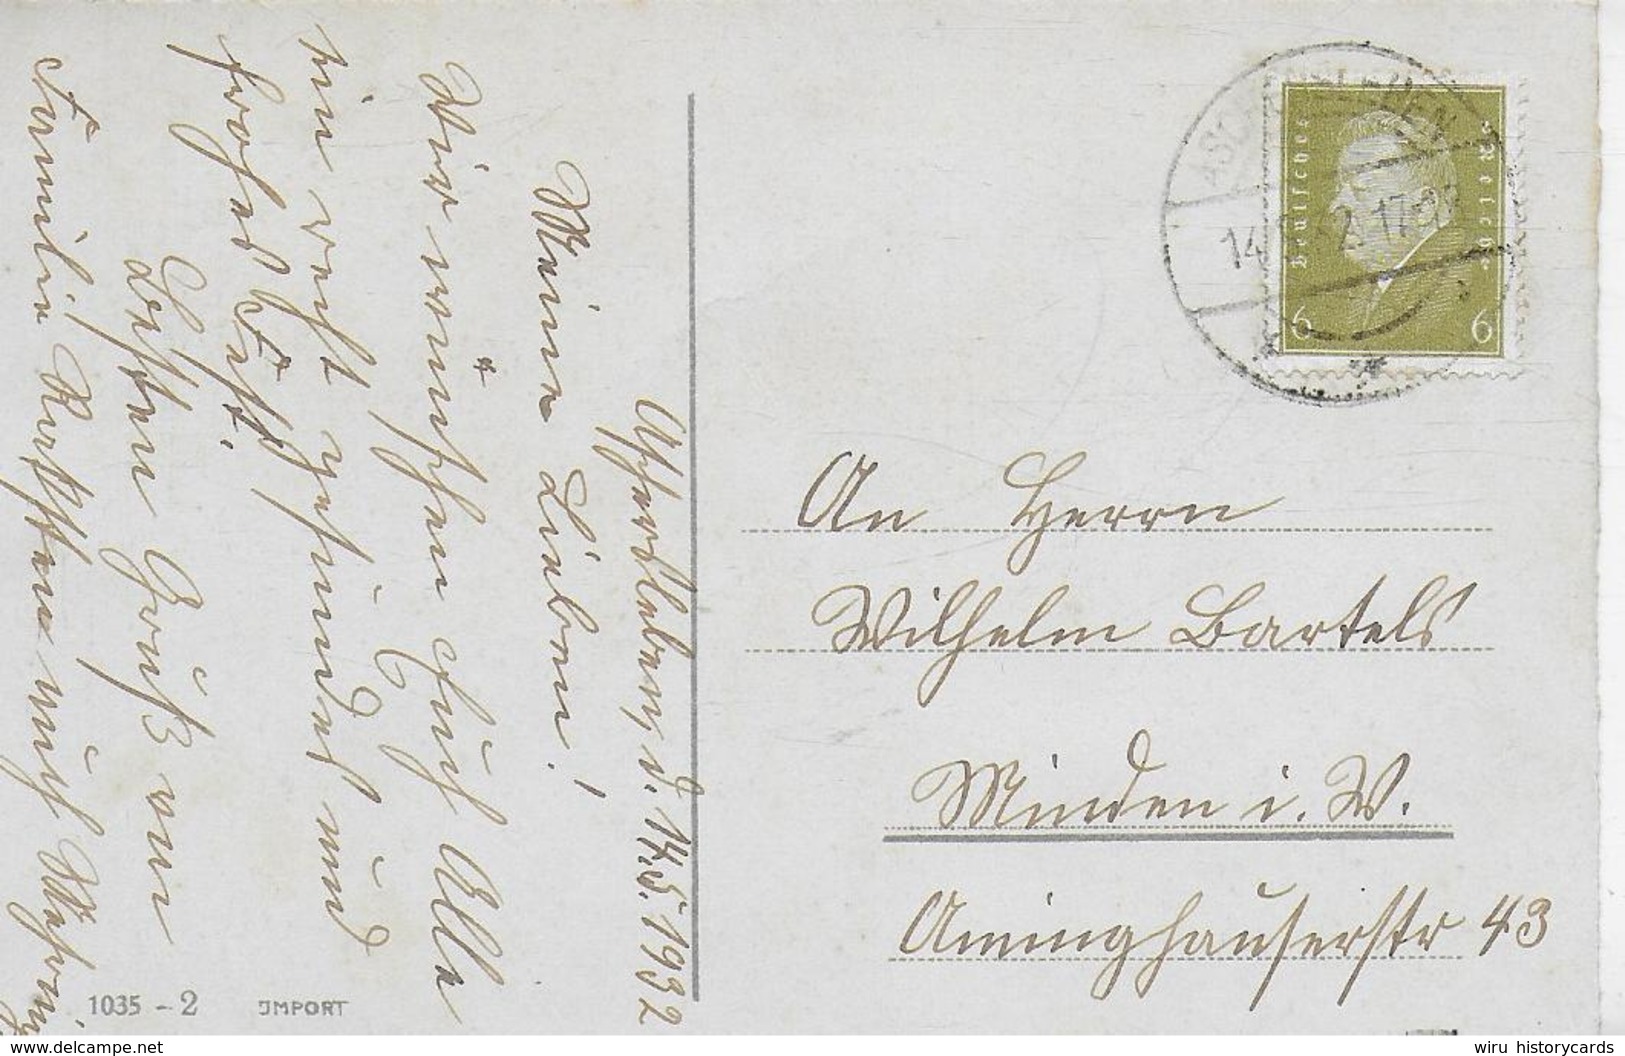 Aschersleben, d. 14.5.1932
Meine Lieben!
Wir wünschen Euch Alle
ein recht gesundes und
frohes Fest.
Besten Gruß von
Familie und
An Herrn
Wilhelm Bartels
Minden i. W.
Aminghauserstr 43
ASCHERSLEBEN
14 32 17
Deutsches Reich
6 6
1035 - 2 IMPORT
wiru historycards
www.delcampe.net